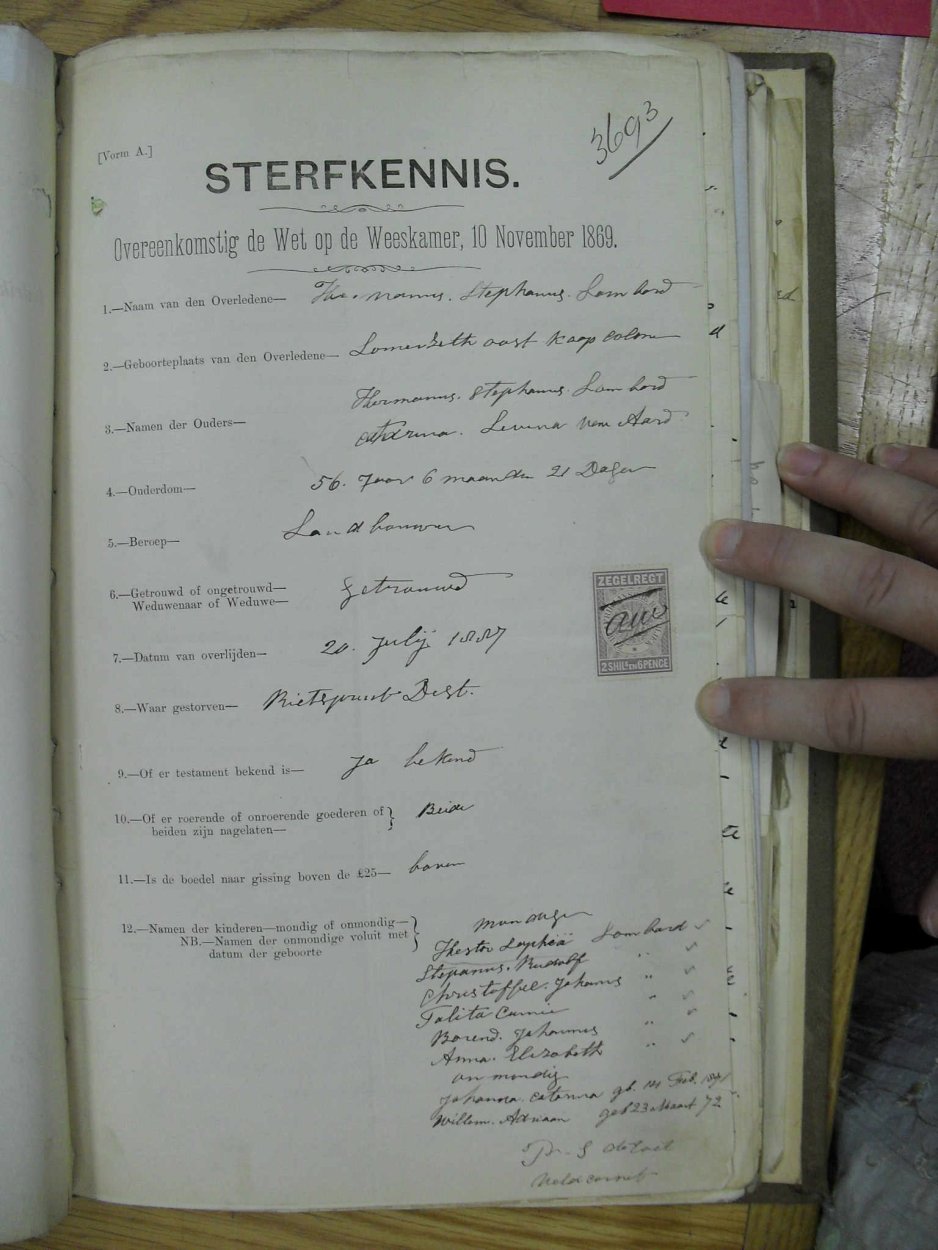 3693
[Vorm A.]
STERFKENNIS.
Overeenkomstig de Wet op de Weeskamer, 10 November 1869.
1.—Naam van den Overledene— Thermanus. Stephanus. Lombard
2.—Geboorteplaats van den Overledene— oost kaap colonie
3.—Namen der Ouders— Thermanus. Stephanus. Lombard
Levina van Aard
4.—Ouderdom— 56. Jaar 6 maanden 21 Dagen
5.—Beroep— Landbouwer
6.—Getrouwd of ongetrouwd— Getrouwd
Weduwenaar of Weduwe—
7.—Datum van overlijden— 20. Julij 1887
8.—Waar gestorven— Dist.
9.—Of er testament bekend is— Ja bekend
10.—Of er roerende of onroerende goederen of } Beide
beiden zijn nagelaten—
11.—Is de boedel naar gissing boven de £25— boven
12.—Namen der kinderen—mondig of onmondig— }
NB.—Namen der onmondige voluit met
datum der geboorte
Thester Lombard
Stepanus. Rudolf "
Christoffel. Johanes "
Talita "
Barend. Johannes "
Anna. Elizabeth "
on mondig
Johanna. gb. 14 Feb.
Willem. Adriaan geb 23 Maart 72
Veldcornet
ZEGELREGT
2 SHILS EN 6 PENCE